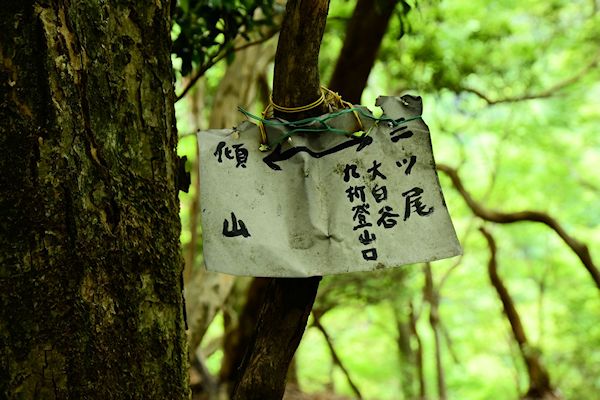 三ツ尾
大白谷
九折登山口
傾山